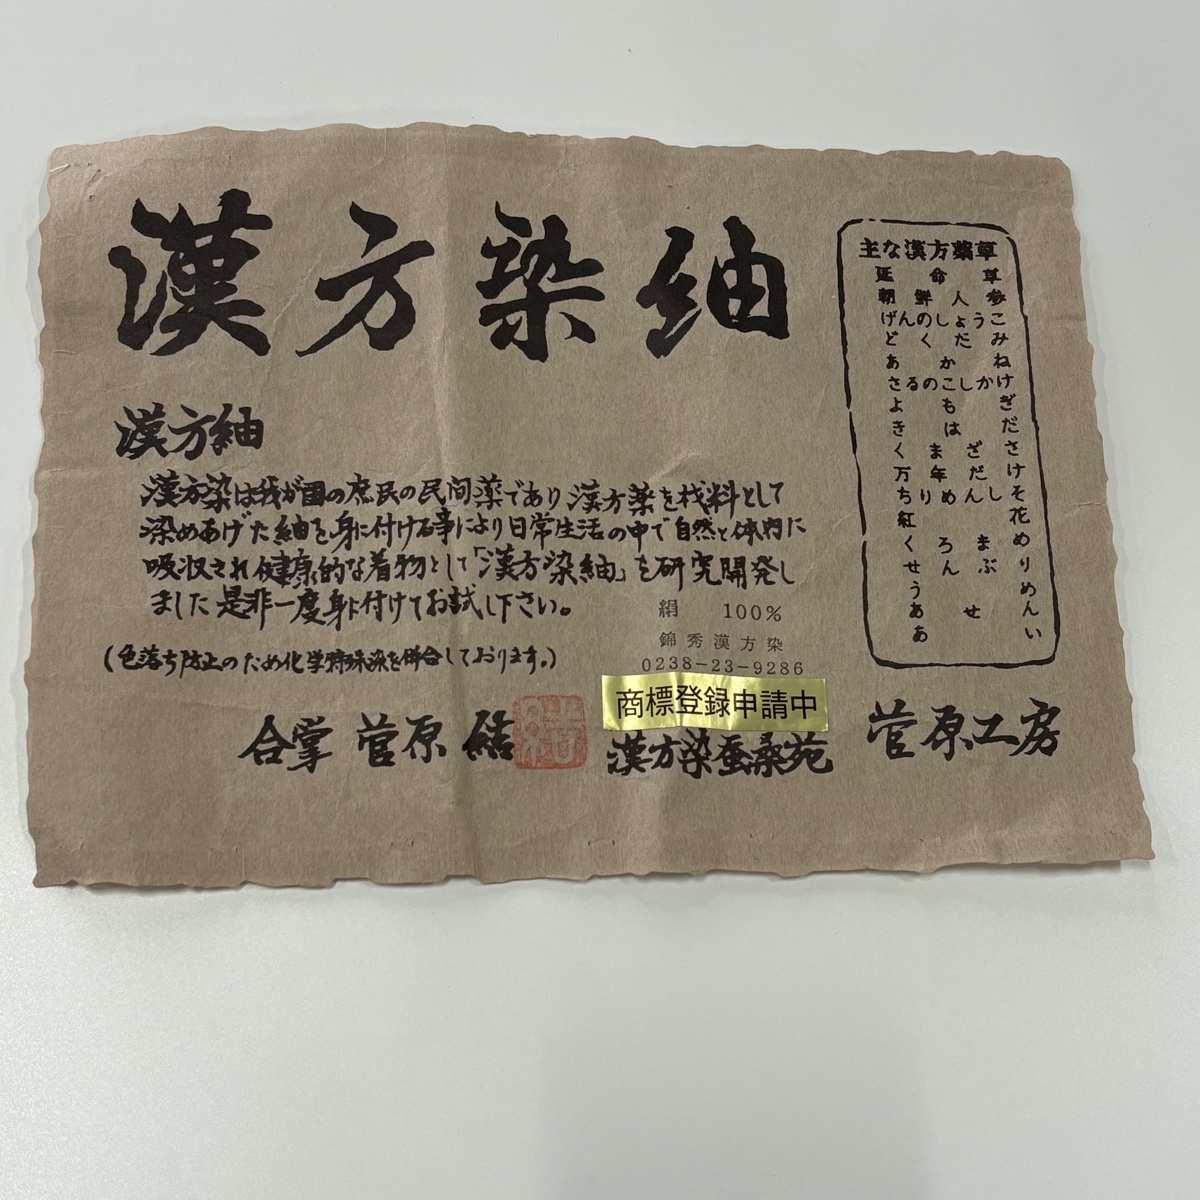 漢方染紬
漢方紬
漢方染は我が国の庶民の民間薬であり漢方薬を材料として
染めあげた紬を身に付ける事により日常生活の中で自然と体内に
吸収され健康的な着物として「漢方染紬」を研究開発し
ました是非一度身に付けてお試し下さい。
(色落ち防止のため化学特殊染を併合しております。)
絹 100%
錦秀漢方染
0238-23-9286
商標登録申請中
合掌 菅原
漢方染蚕桑苑
菅原工房
主な漢方薬草
延命草
朝鮮人参
げんのしょうこ
どくだみ
あかね
さるのこしかけ
よもぎ
きはだ
くまざさ
万年だけ
ちりめんしそ
紅花
くろまめ
せんぶり
うめ
あせん
あい